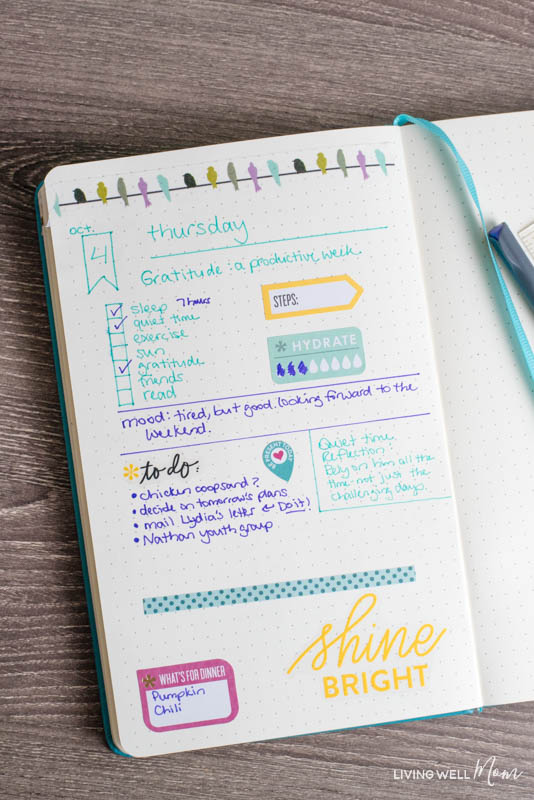 oct.
4
thursday
Gratitude: a productive week
sleep 7 hours
quiet time
exercise
sun
gratitude
friends
read
STEPS:
* HYDRATE
mood: tired, but good. looking forward to the
weekend.
*to do:
• chicken coop sand?
• decide on tomorrow's plans
• mail Lydia's letter ← Do it!
• Nathan youth group
BE PRESENT TODAY
Quiet time
Reflection:
Rely on him all the
time - not just the
challenging days.
shine
BRIGHT
* WHAT'S FOR DINNER
Pumpkin
Chili
LIVING WELL Mom